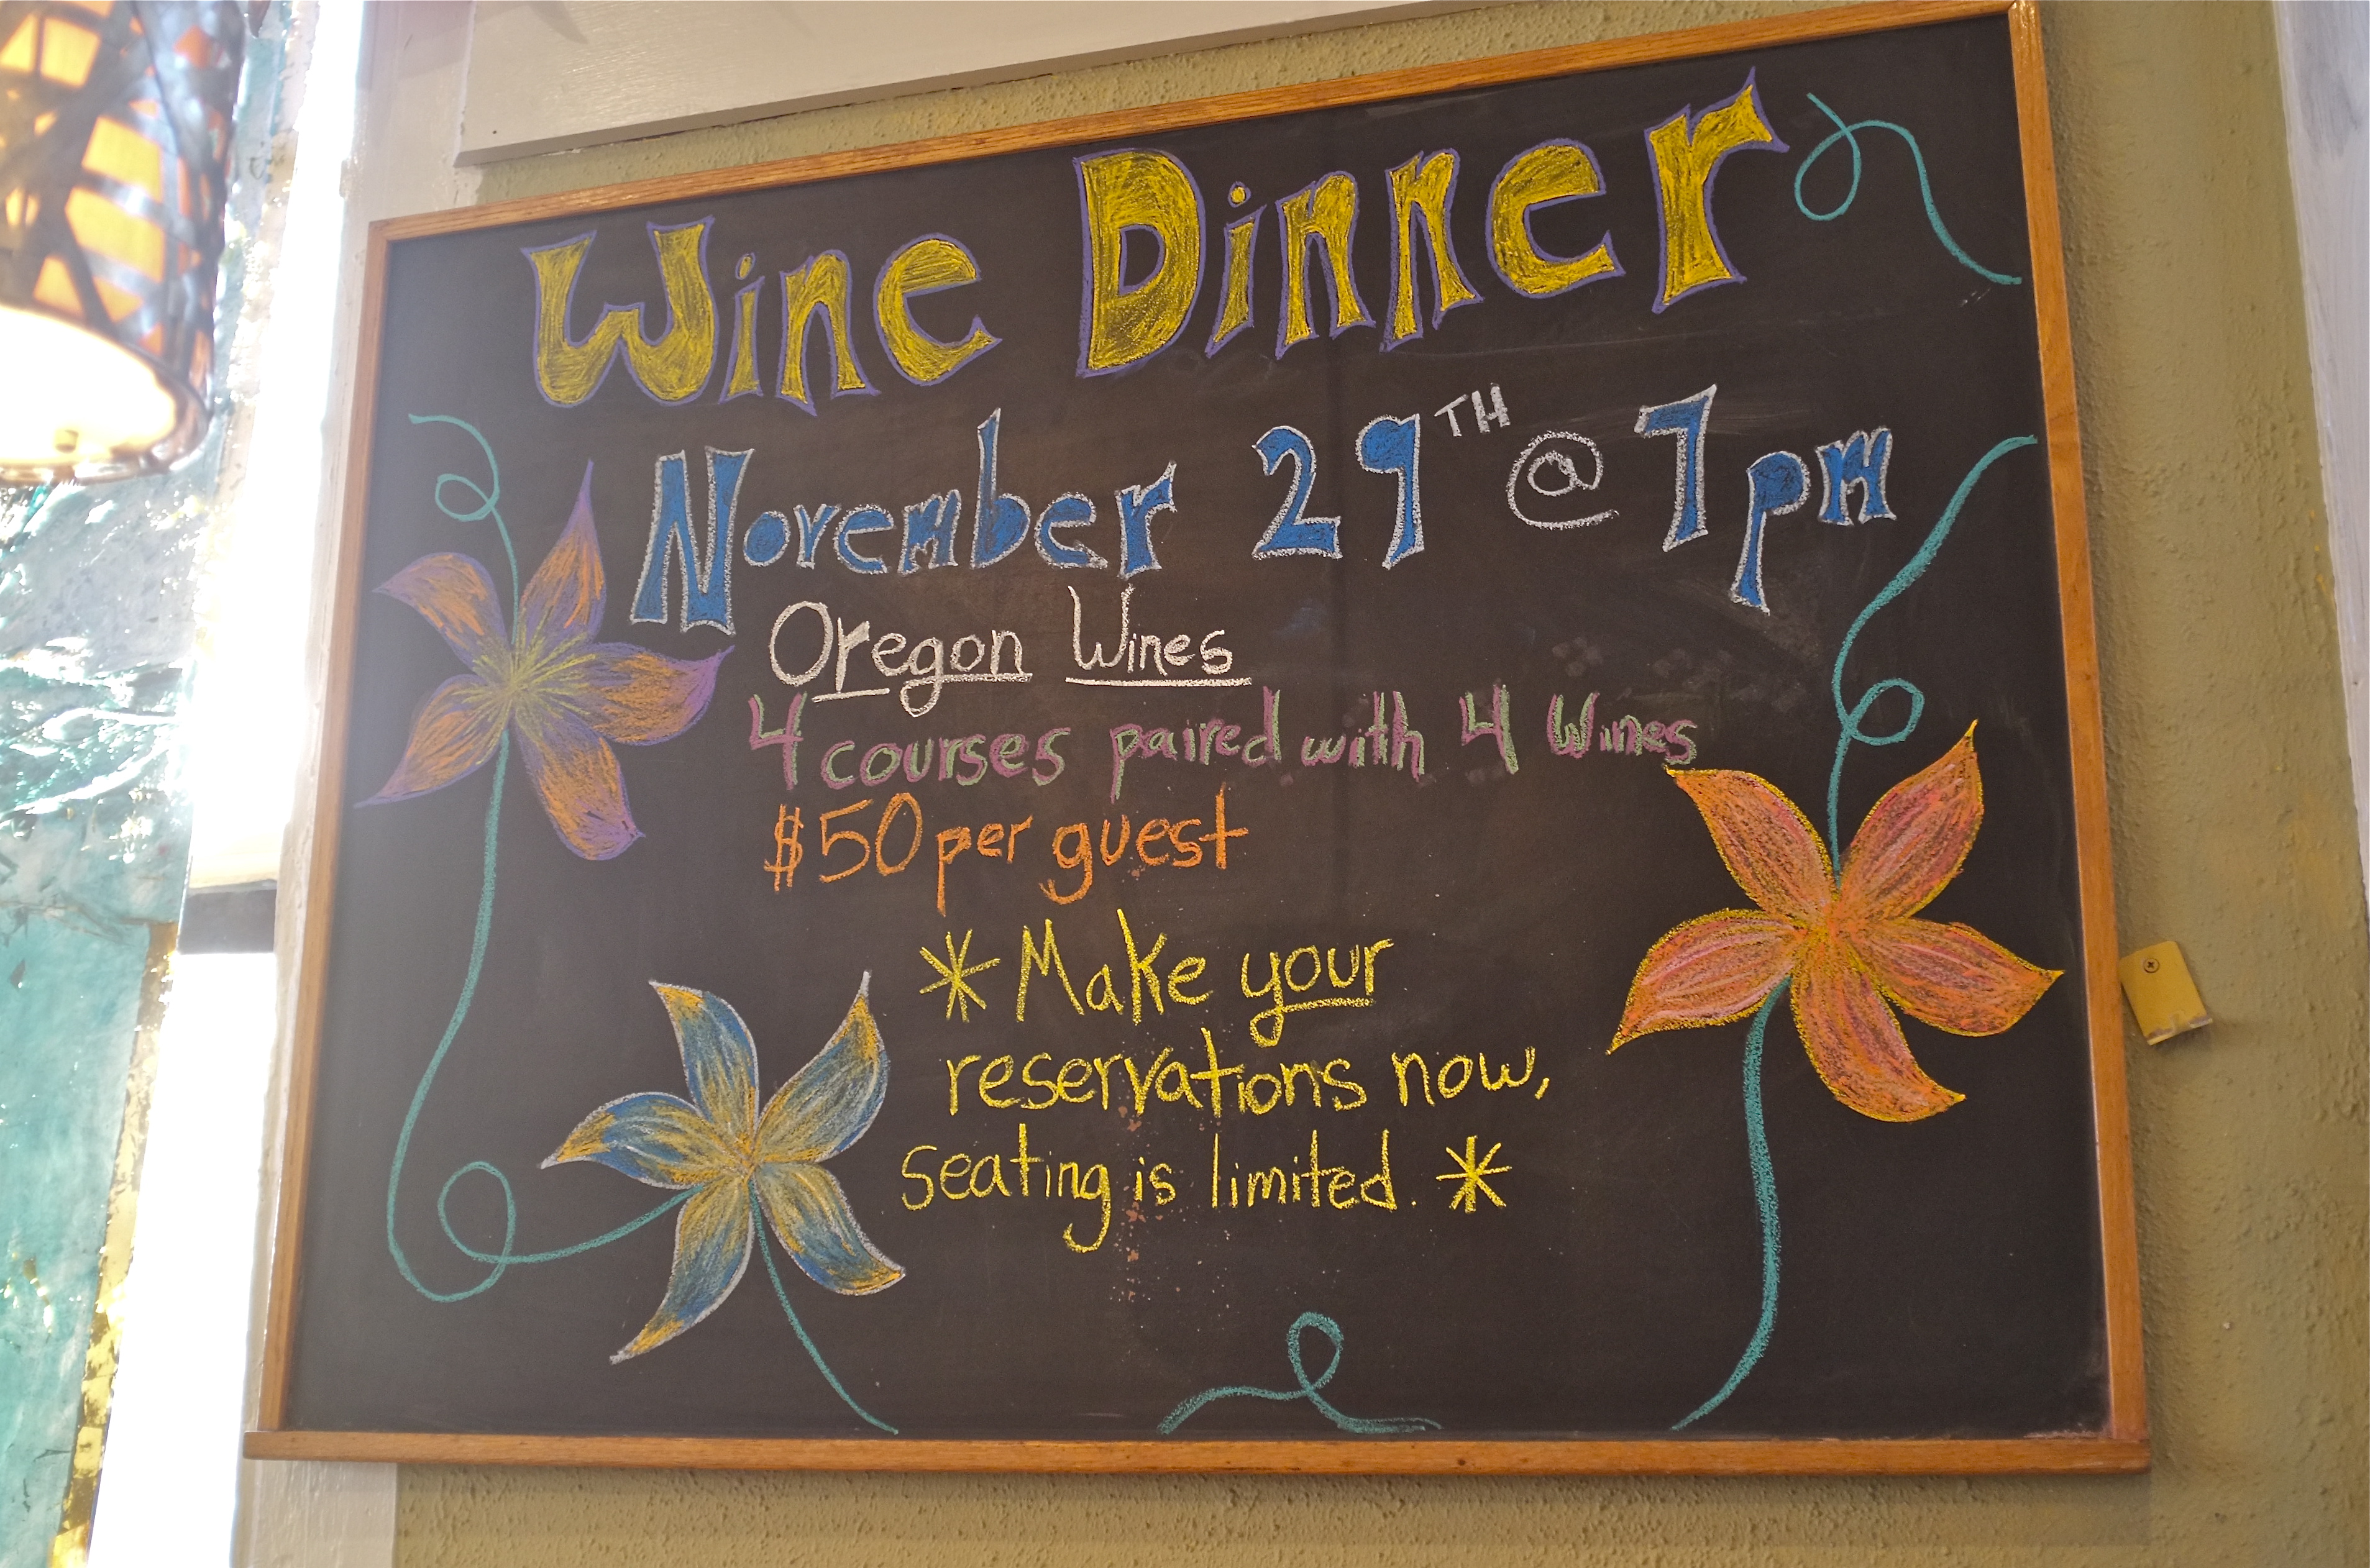 Wine Dinner
November 29TH @ 7pm
Oregon Wines
4 courses paired with 4 Wines
$50 per guest
*Make your
reservations now,
seating is limited. *